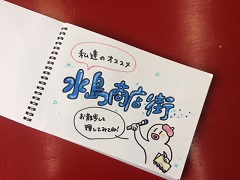 私達のオススメ
水島商店街
お散歩して
探してみてね!